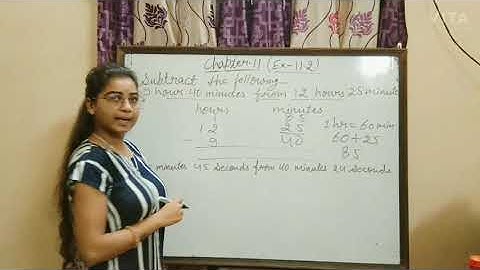 Chapter-11 (Ex-11.2)
Subtract the following
9 hour 40 minutes from 12 hours 25 minute
hours minutes
85
12 25 1 hr = 60 min
- 9 40 60+25
85
minutes 45 seconds from 40 minutes 24 seconds
VITA